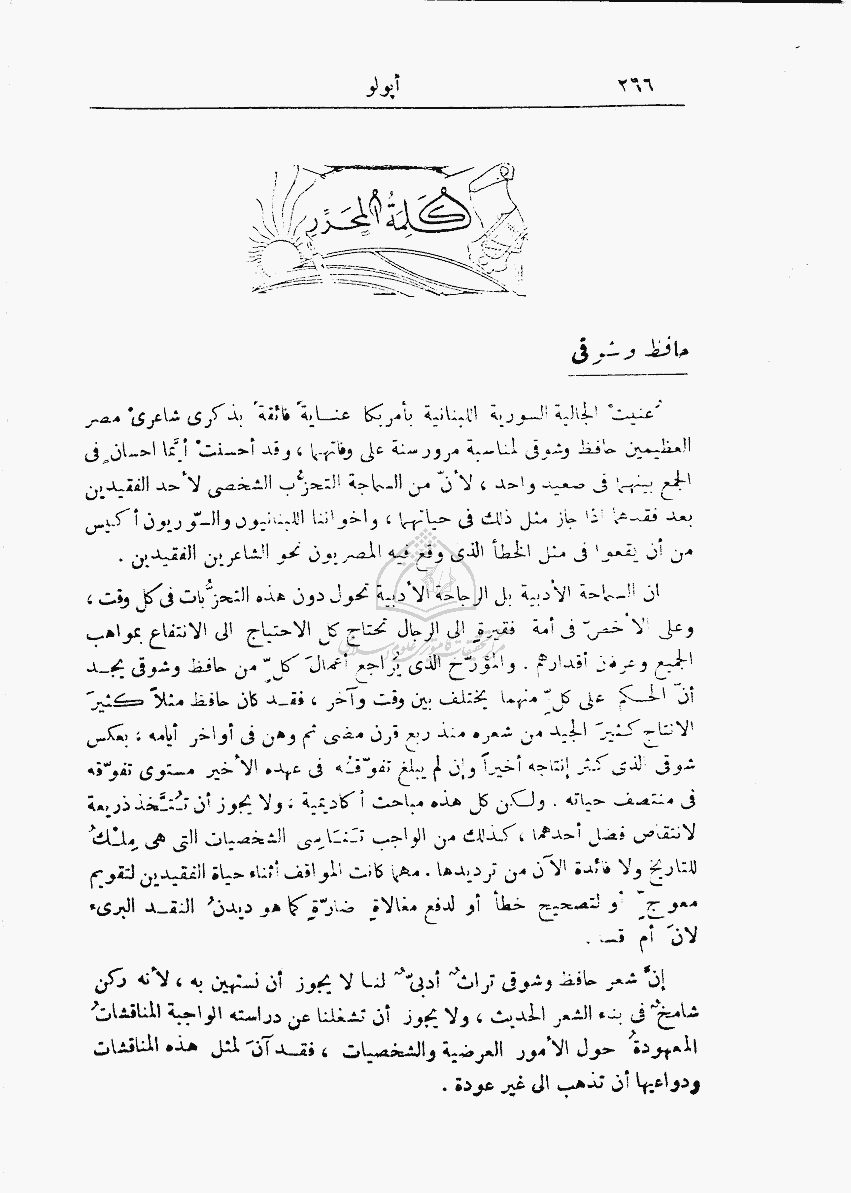 ٢٦٦
أپولو
كَلِمَةُ المُحَرِّر
حافظ وشوقى
عُنيت الجالية السورية اللبنانية بأمريكا عنايةً فائقةً بذكرى شاعرىْ مصر
العظيمين حافظ وشوقى لمناسبة مرور سنة على وفاتهما ، وقد أحسنتْ أيَّما احسانٍ فى
الجمع بينهما فى صعيد واحد ، لأنّ من السماجة التحزُّب الشخصى لأحد الفقيدين
بعد فقدهما اذا جاز مثل ذلك فى حياتهما ، واخواننا اللبنانيون والسّوريون أكيس
من أن يقعوا فى مثل الخطأ الذى وقع فيه المصريون نحو الشاعرين الفقيدين .
ان السماحة الأدبية بل الرجاحة الأدبية تحول دون هذه التحزُّبات فى كل وقت ،
وعلى الأخصّ فى أمة فقيرةٍ الى الرجال تحتاج كل الاحتياج الى الانتفاع بمواهب
الجميع وعرفان أقدارهم . والمؤرّخ الذى يُراجع أعمالَ كلّ من حافظ وشوقى يجد
أنّ الحكم على كلّ منهما يختلف بين وقت وآخر ، فقد كان حافظ مثلاً كثيرَ
الانتاج كثيرَ الجيد من شعره منذ ربع قرن مضى ثم وهن فى أواخر أيامه ، بعكس
شوقى الذى كثر إنتاجه أخيراً وإن لم يبلغ تفوّقُه فى عهده الأخير مستوى تفوّقه
فى منتصف حياته . ولكن كل هذه مباحث أكاديمية ، ولا يجوز أن تُتَّخذ ذريعة
لانتقاص فضل أحدهما ، كذلك من الواجب تَنَاسِى الشخصيات التى هى مِلْكُ
للتاريخ ولا فائدة الآن من ترديدها . مهما كانت المواقف أثناء حياة الفقيدين لتقويم
معوجٍّ أو لتصحيح خطأ أو لدفع مغالاةٍ ضارّةٍ كما هو ديدنُ النقد البرىء
لانَ أم قسا .
إنَّ شعر حافظ وشوقى تراثٌ أدبىٌّ لنا لا يجوز أن نستهين به ، لأنه ركن
شامخٌ فى بناء الشعر الحديث ، ولا يجوز أن تشغلنا عن دراسته الواجبة المناقشاتُ
المعهودةُ حول الأمور العرضية والشخصيات ، فقد آنَ لمثل هذه المناقشات
ودواعيها أن تذهب الى غير عودة .